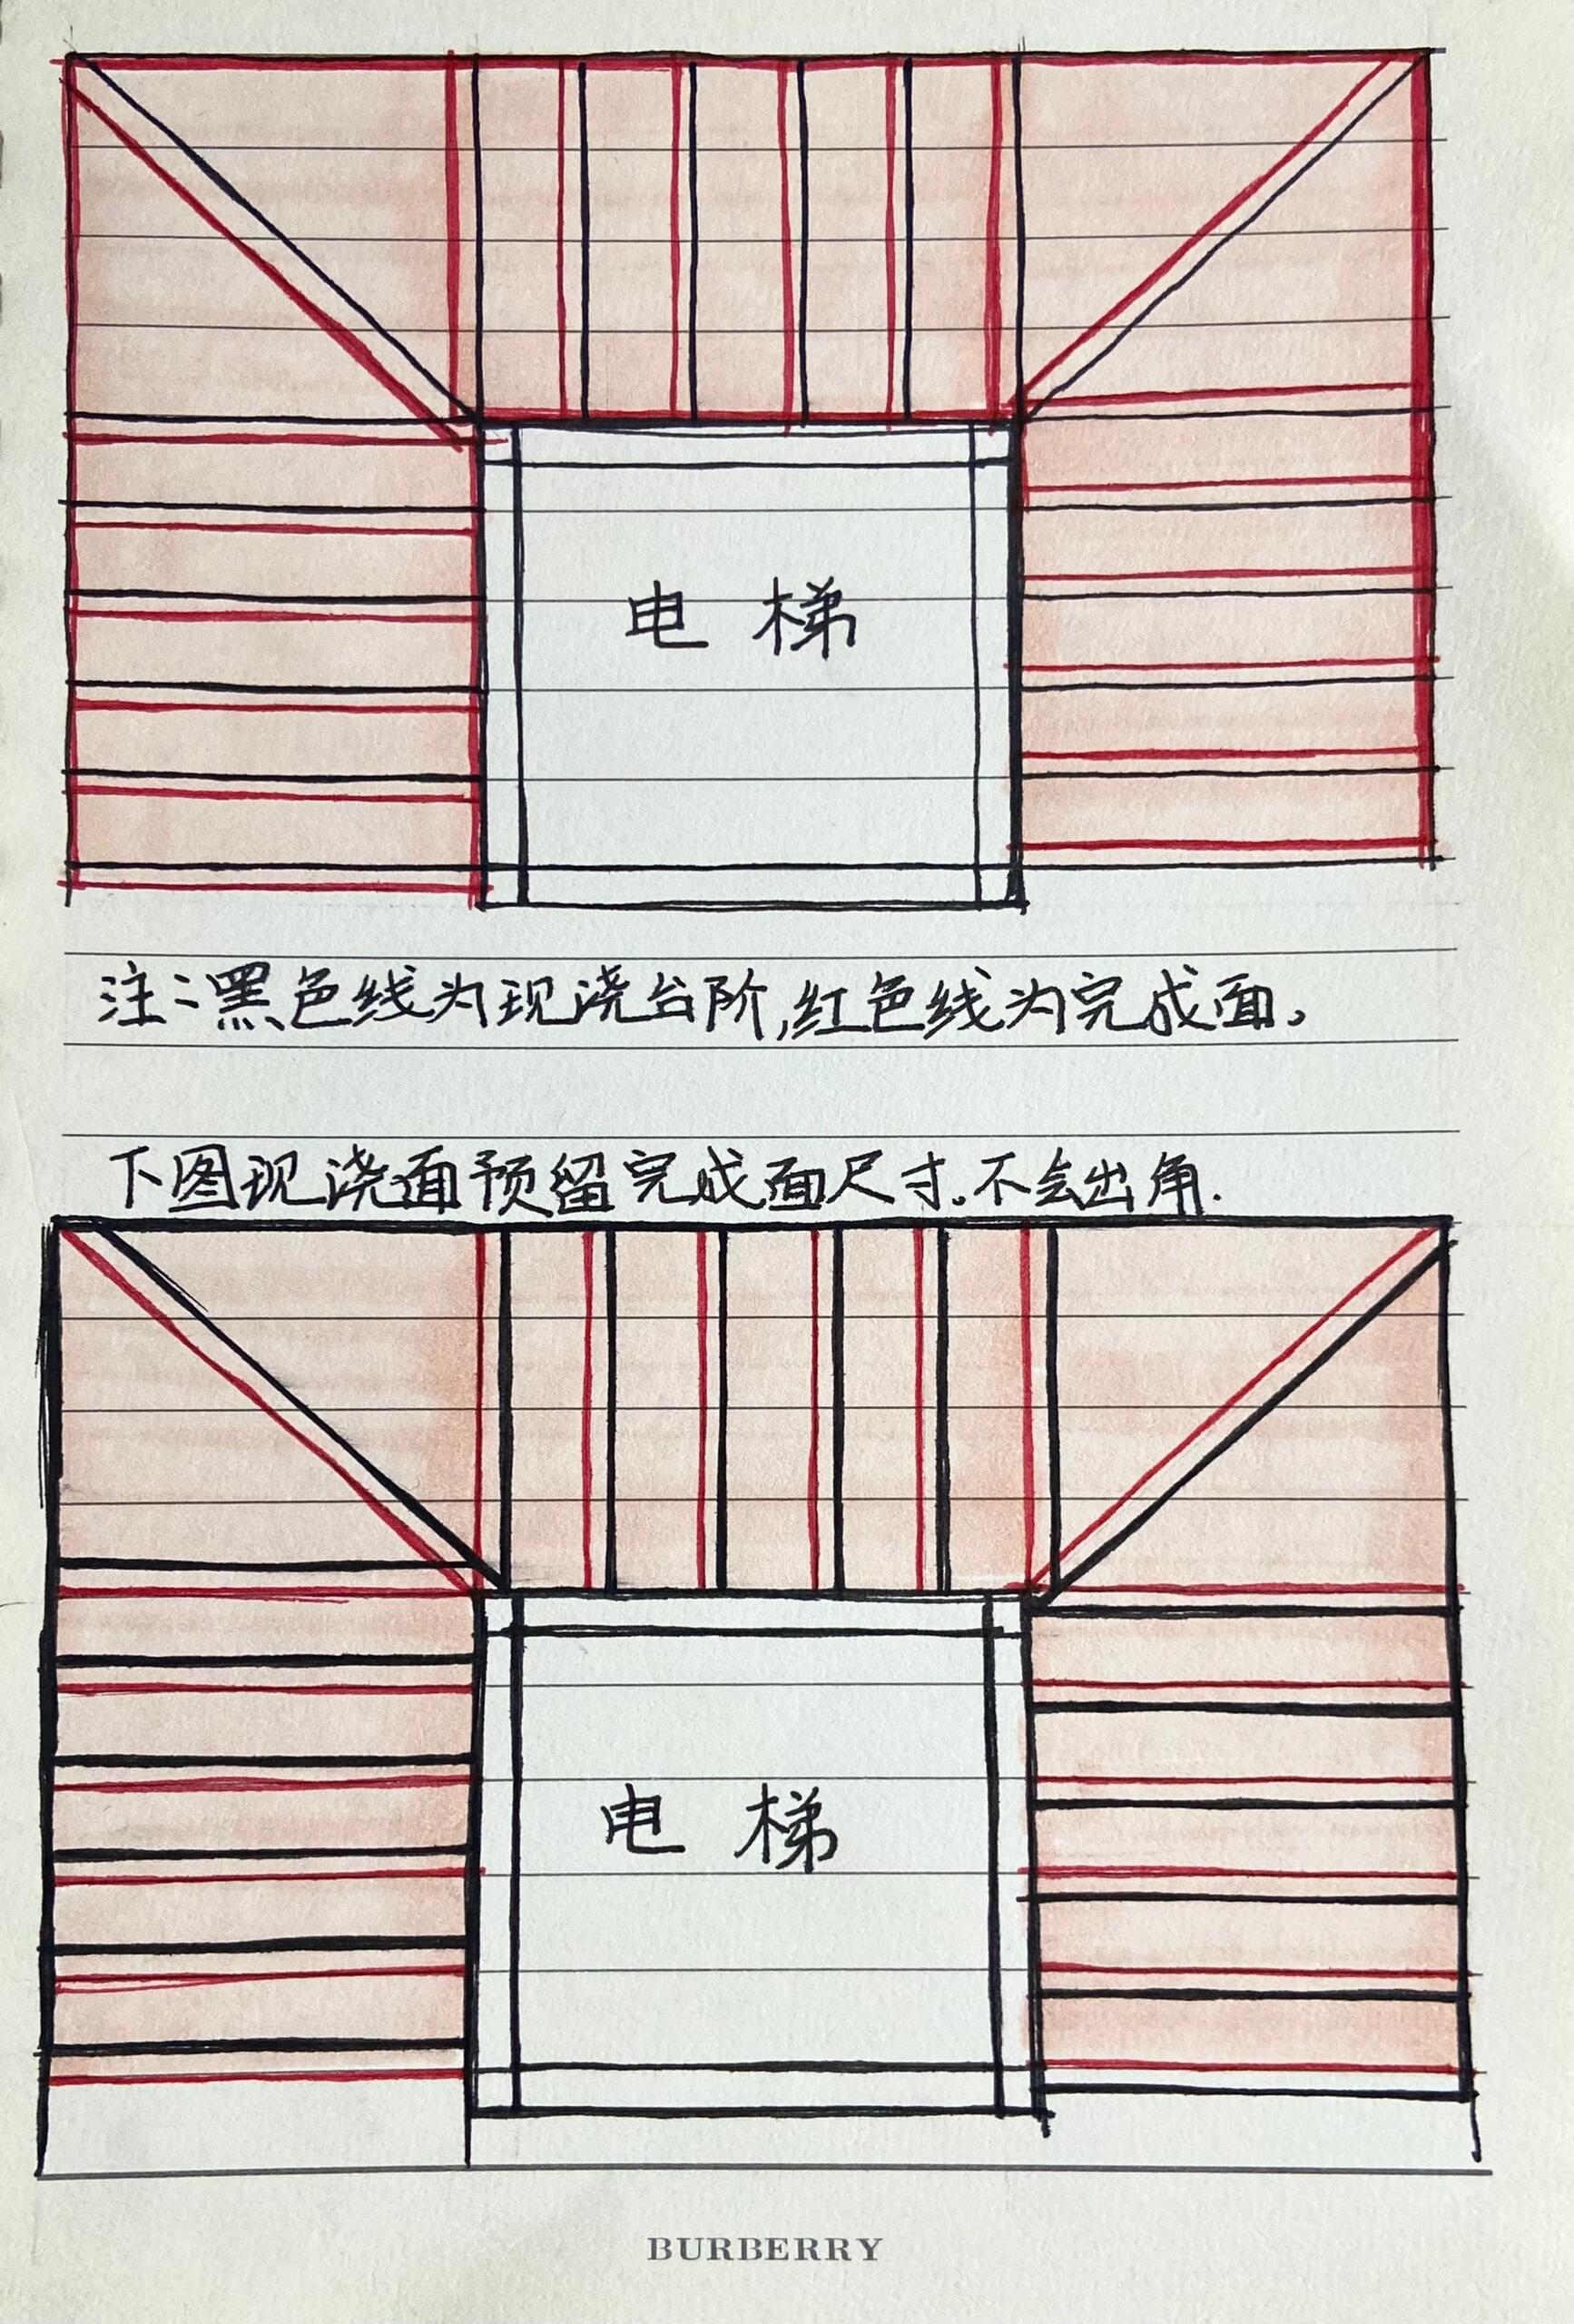 电 梯
注:黑色线为现浇台阶,红色线为完成面。
下图现浇面预留完成面尺寸。不会出角.
电 梯
BURBERRY